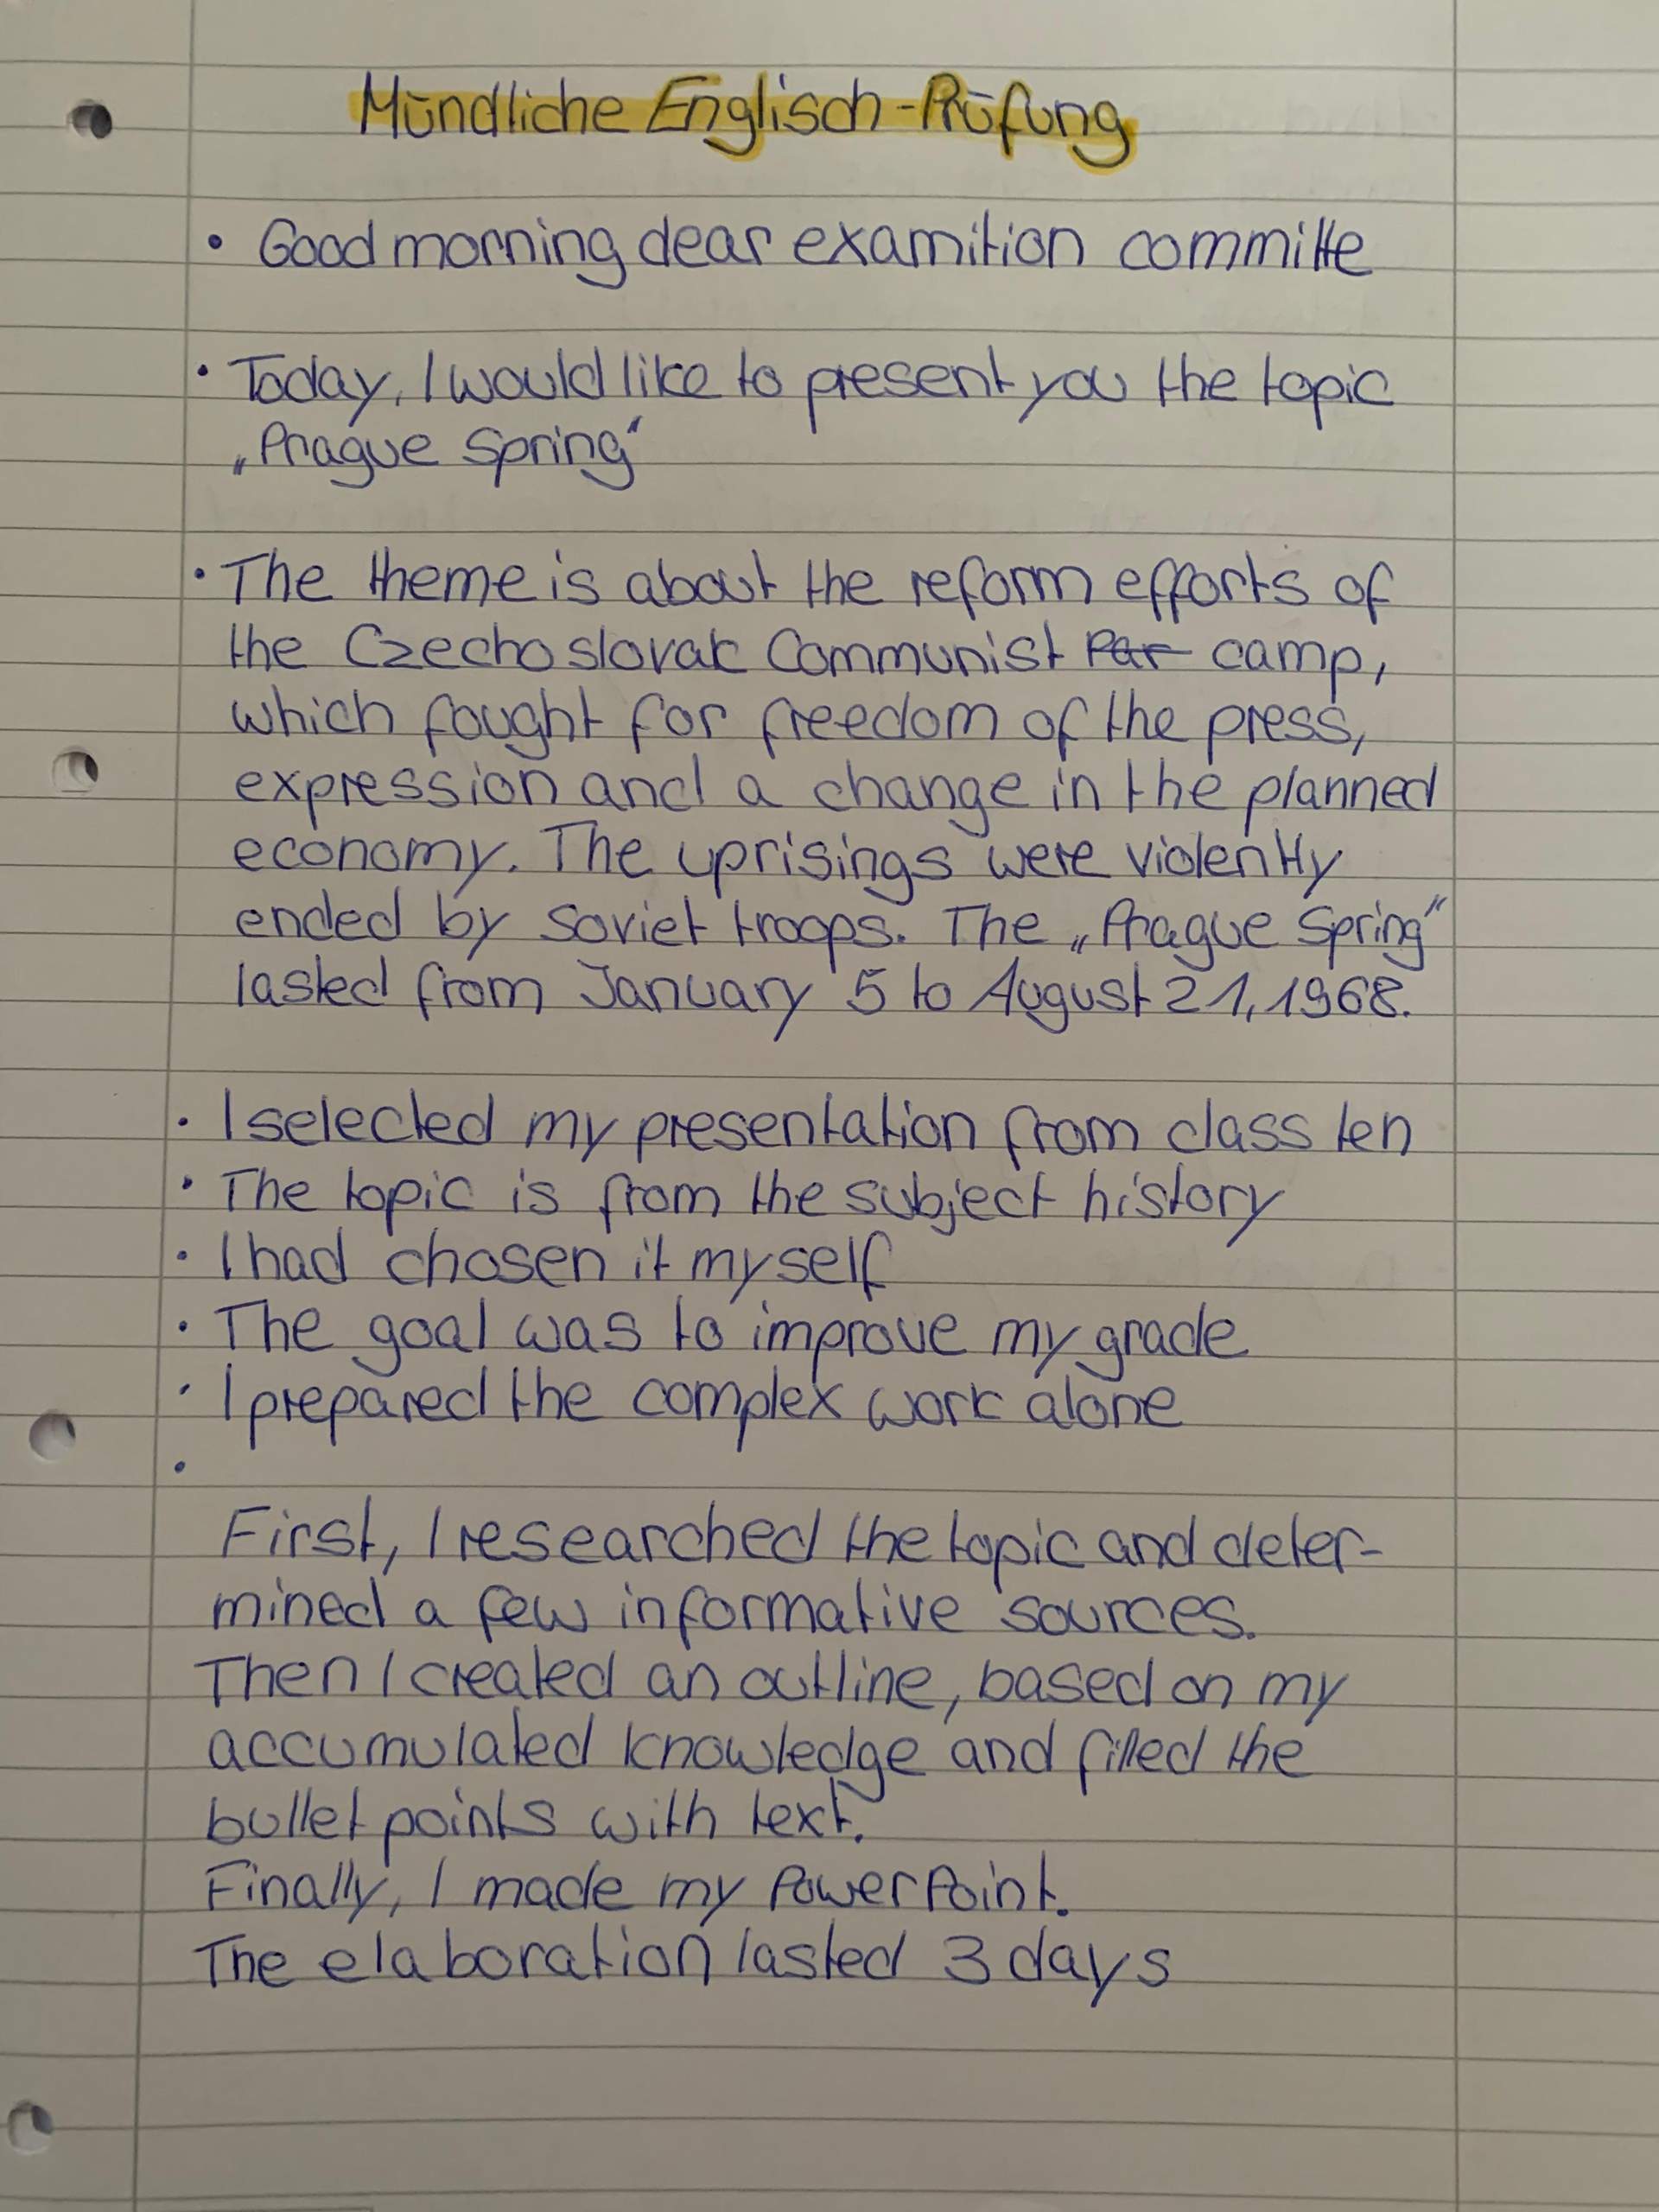 Mündliche Englisch-Prüfung
• Good morning dear examition committe
• Today, I would like to present you the topic
„Prague Spring“
• The theme is about the reform efforts of
the Czechoslovak Communist Par camp,
which fought for freedom of the press,
expression and a change in the planned
economy. The uprisings were violently
ended by soviet troops. The „Prague Spring“
lasted from January 5 to August 21, 1968.
• I selected my presentation from class ten
• The topic is from the subject history
• I had chosen it myself
• The goal was to improve my grade
• I prepared the complex work alone
•
First, I researched the topic and deter-
mined a few informative sources.
Then I created an outline, based on my
accumulated knowledge and filled the
bullet points with text.
Finally, I made my PowerPoint.
The elaboration lasted 3 days